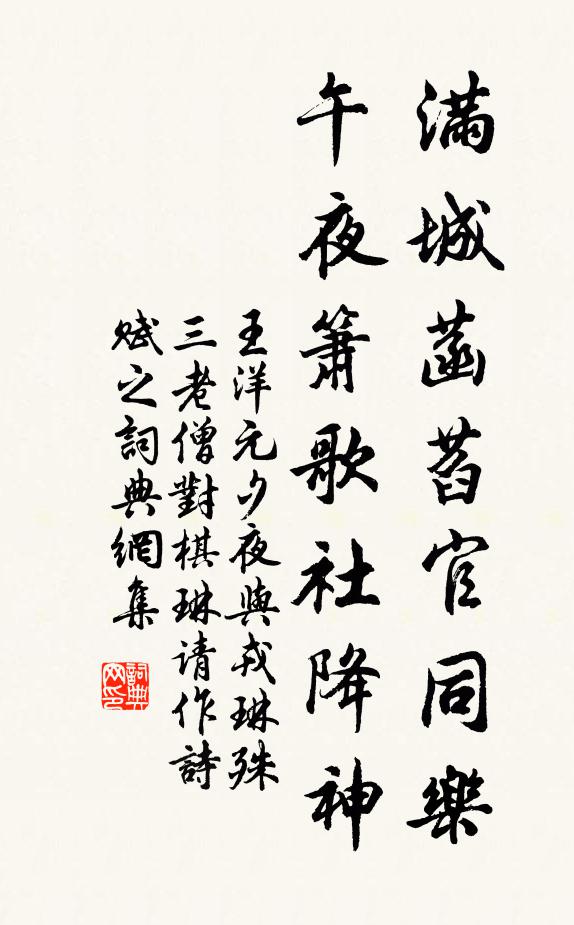 滿城菡萏官同樂
午夜簫歌社降神
王洋元夕夜與戎琳殊
三老僧對棋琳请作詩
賦之詞典網集
詞典网印